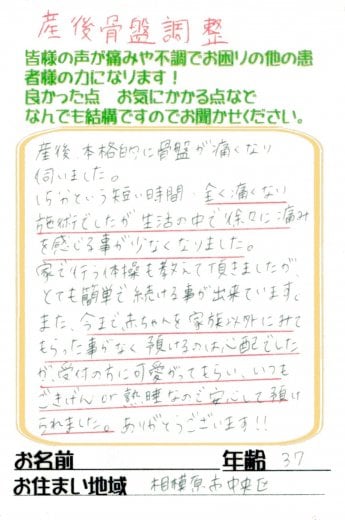 産後骨盤調整
皆様の声が痛みや不調でお困りの他の患
者様の力になります！
良かった点　お気にかかる点など
なんでも結構ですのでお聞かせください。
産後、本格的に骨盤が痛くなり
伺いました。
15分という短い時間、全く痛くない
施術でしたが生活の中で徐々に痛み
を感じる事が少なくなりました。
家で行う体操も教えて頂きましたが、
とても簡単で続ける事が出来ています。
また、今まで赤ちゃんを家族以外にみて
もらった事がなく預けるのは心配でした
が、受付の方に可愛がってもらい、いつも
ごきげん or 熟睡なので安心して預け
られました。ありがとうございます!!
お名前　年齢 37
お住まい地域　相模原市中央区